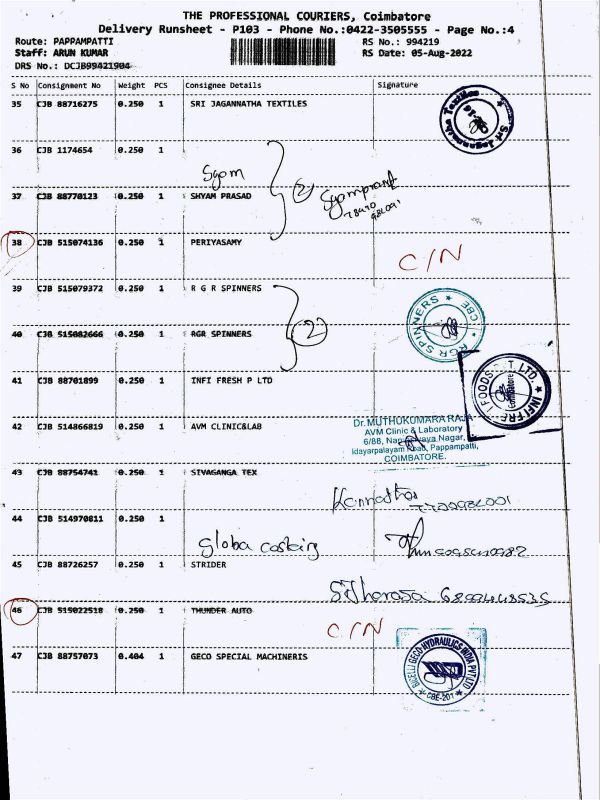 THE PROFESSIONAL COURIERS, Coimbatore
Delivery Runsheet - P103 - Phone No.:0422-3505555 - Page No.:4
Route: PAPPAMPATTI RS No.: 994219
Staff: ARUN KUMAR RS Date: 05-Aug-2022
DRS No.: DCJB99421904
S No Consignment No Weight PCS Consignee Details Signature
35 CJB 88716275 0.250 1 SRI JAGANNATHA TEXTILES
Sri Jagannatha Textiles
36 CJB 1174654 0.250 1
Syam
37 CJB 88770123 0.250 1 SHYAM PRASAD
2
38 CJB 515074136 0.250 1 PERIYASAMY
C/N
39 CJB 515079372 0.250 1 R G R SPINNERS
RGR SPINNERS CBE
40 CJB 515082666 0.250 1 RGR SPINNERS
2
41 CJB 88701899 0.250 1 INFI FRESH P LTD
Coimbatore
42 CJB 514866819 0.250 1 AVM CLINIC&LAB
Dr.MUTHUKUMARA RAJA
AVM Clinic & Laboratory
6/88, Nagar,
Idayarpalayam Road, Pappampatti,
COIMBATORE.
43 CJB 88754741 0.250 1 SIVAGANGA TEX
44 CJB 514970811 0.250 1
Globa
45 CJB 88726257 0.250 1 STRIDER
46 CJB 515022518 0.250 1 THUNDER AUTO
C/N
47 CJB 88757073 0.404 1 GECO SPECIAL MACHINERIS
GECO HYDRAULICS INDIA PVT LTD